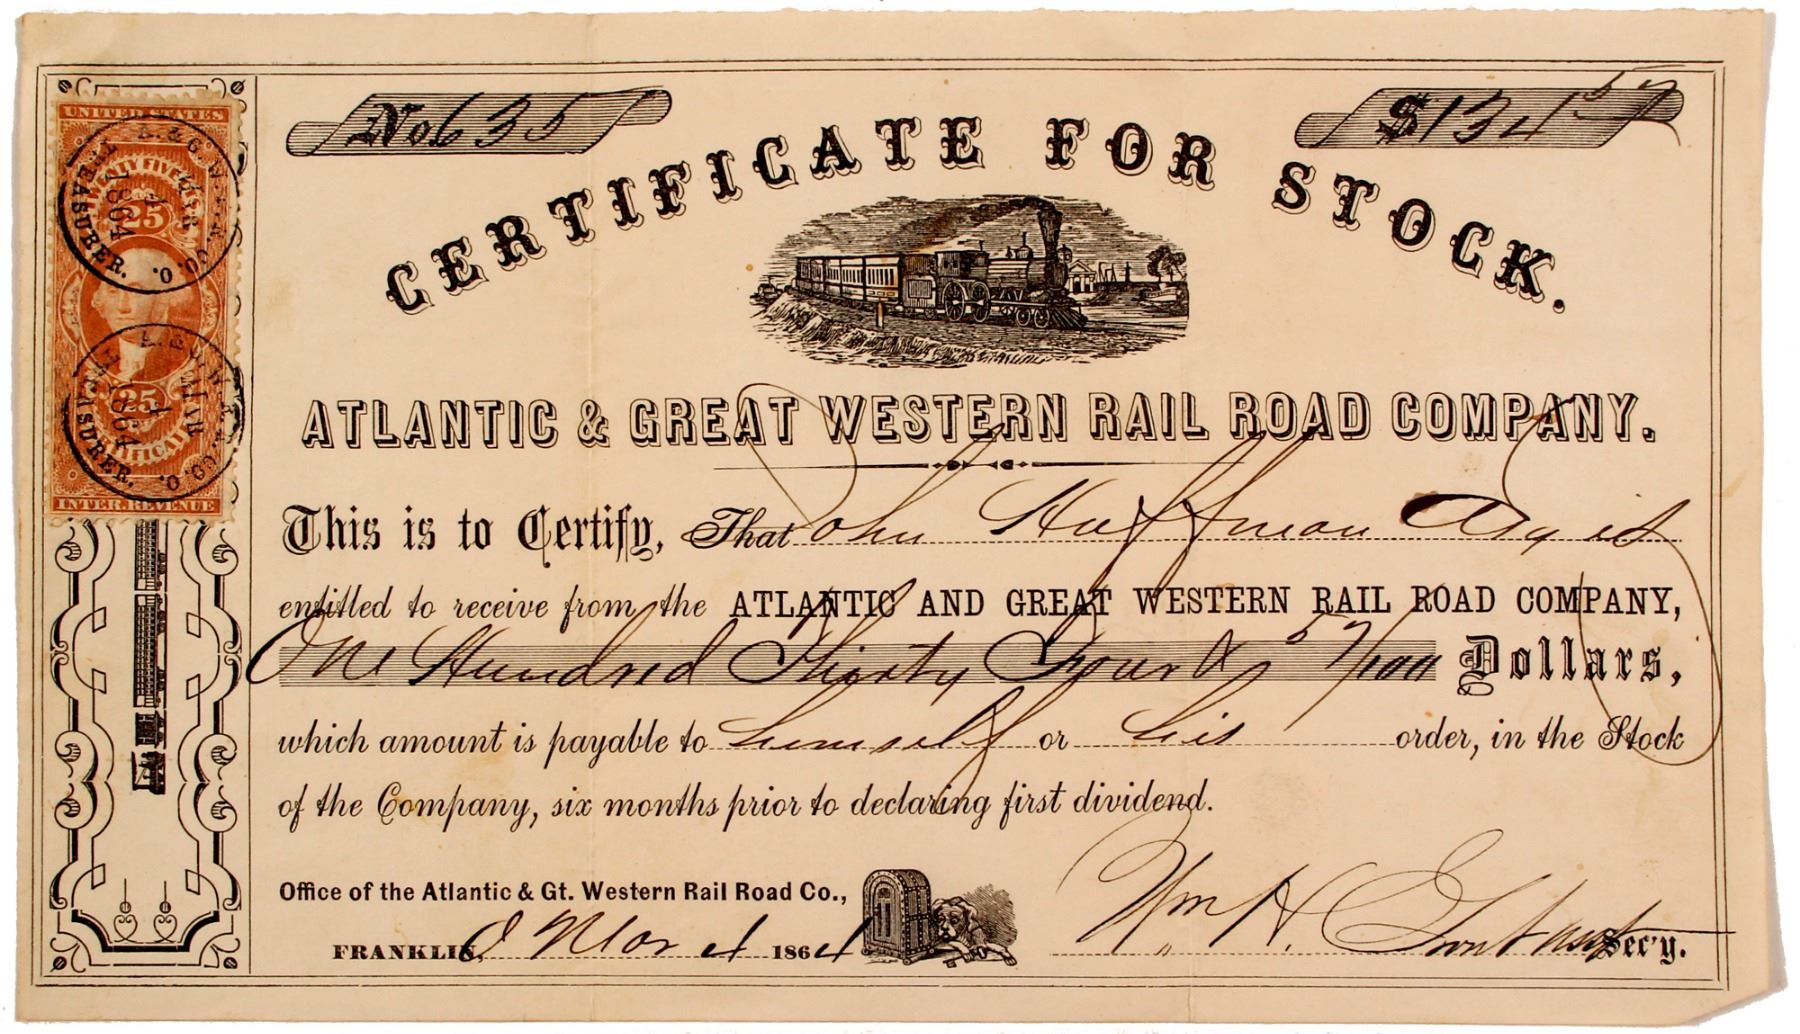 No. 635
$134 57
CERTIFICATE FOR STOCK.
UNITED STATES
TWENTY FIVE CENTS
25
A. & G. W. R. R. CO. O.
MAR
4
1864
TREASURER.
A. & G. W. R. R. CO. O.
MAR
4
1864
TREASURER.
25
CERTIFICATE
INTER. REVENUE
ATLANTIC & GREAT WESTERN RAIL ROAD COMPANY.
This is to Certify, That John Huffman is
entitled to receive from the ATLANTIC AND GREAT WESTERN RAIL ROAD COMPANY,
One Hundred Thirty Four & 57/100 Dollars,
which amount is payable to himself or his order, in the Stock
of the Company, six months prior to declaring first dividend.
Office of the Atlantic & Gt. Western Rail Road Co.,
FRANKLIN, Mar 4 1864
Wm H. Sec'y.